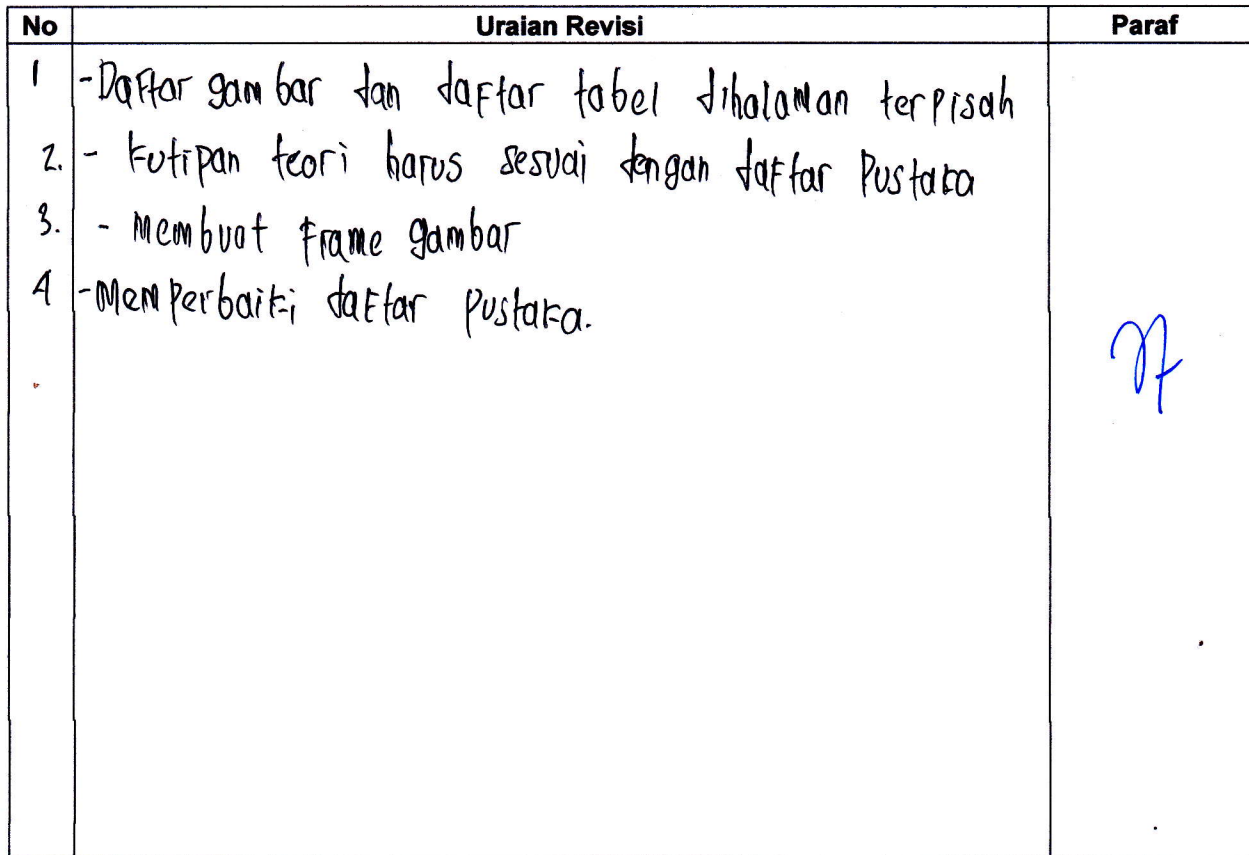 No Uraian Revisi Paraf
1 - Daftar gambar dan daftar tabel dihalaman terpisah
2. - kutipan teori harus sesuai dengan daftar Pustaka
3. - Membuat Frame gambar
4 - Memperbaiki daftar pustaka.